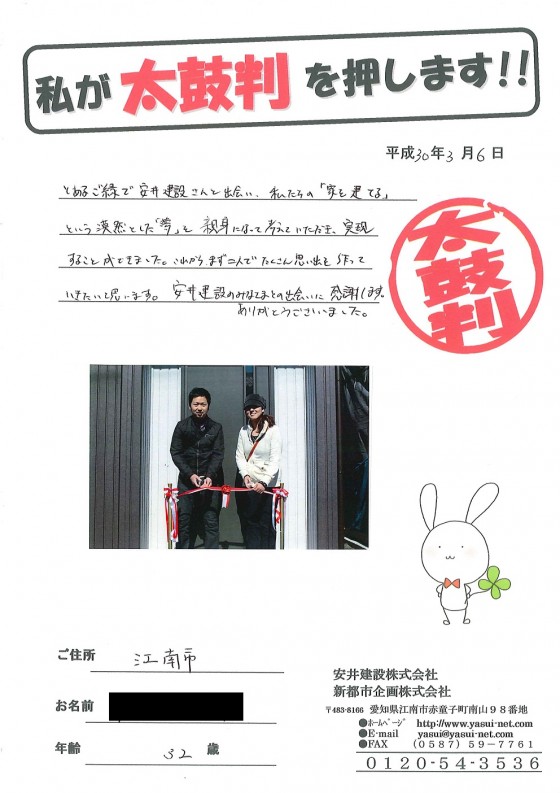 私が 太鼓判 を押します!!
平成30年3月6日
とあるご縁で安井建設さんと出会い、私たちの「家を建てる」
という漠然とした「夢」を親身になって考えていただき、実現
すること ができました。これから、まず二人でたくさん思い出を作って
いきたいと思います。安井建設のみなさまとの出会いに感謝します。
ありがとうございました。
太鼓判
ご住所 江南市
お名前
年齢 32 歳
安井建設株式会社
新都市企画株式会社
〒483-8166 愛知県江南市赤童子町南山98番地
●ﾎｰﾑﾍﾟｰｼﾞ http://www.yasui-net.com
●E-mail yasui@yasui-net.com
●FAX (0587)59-7761
0120-54-3536